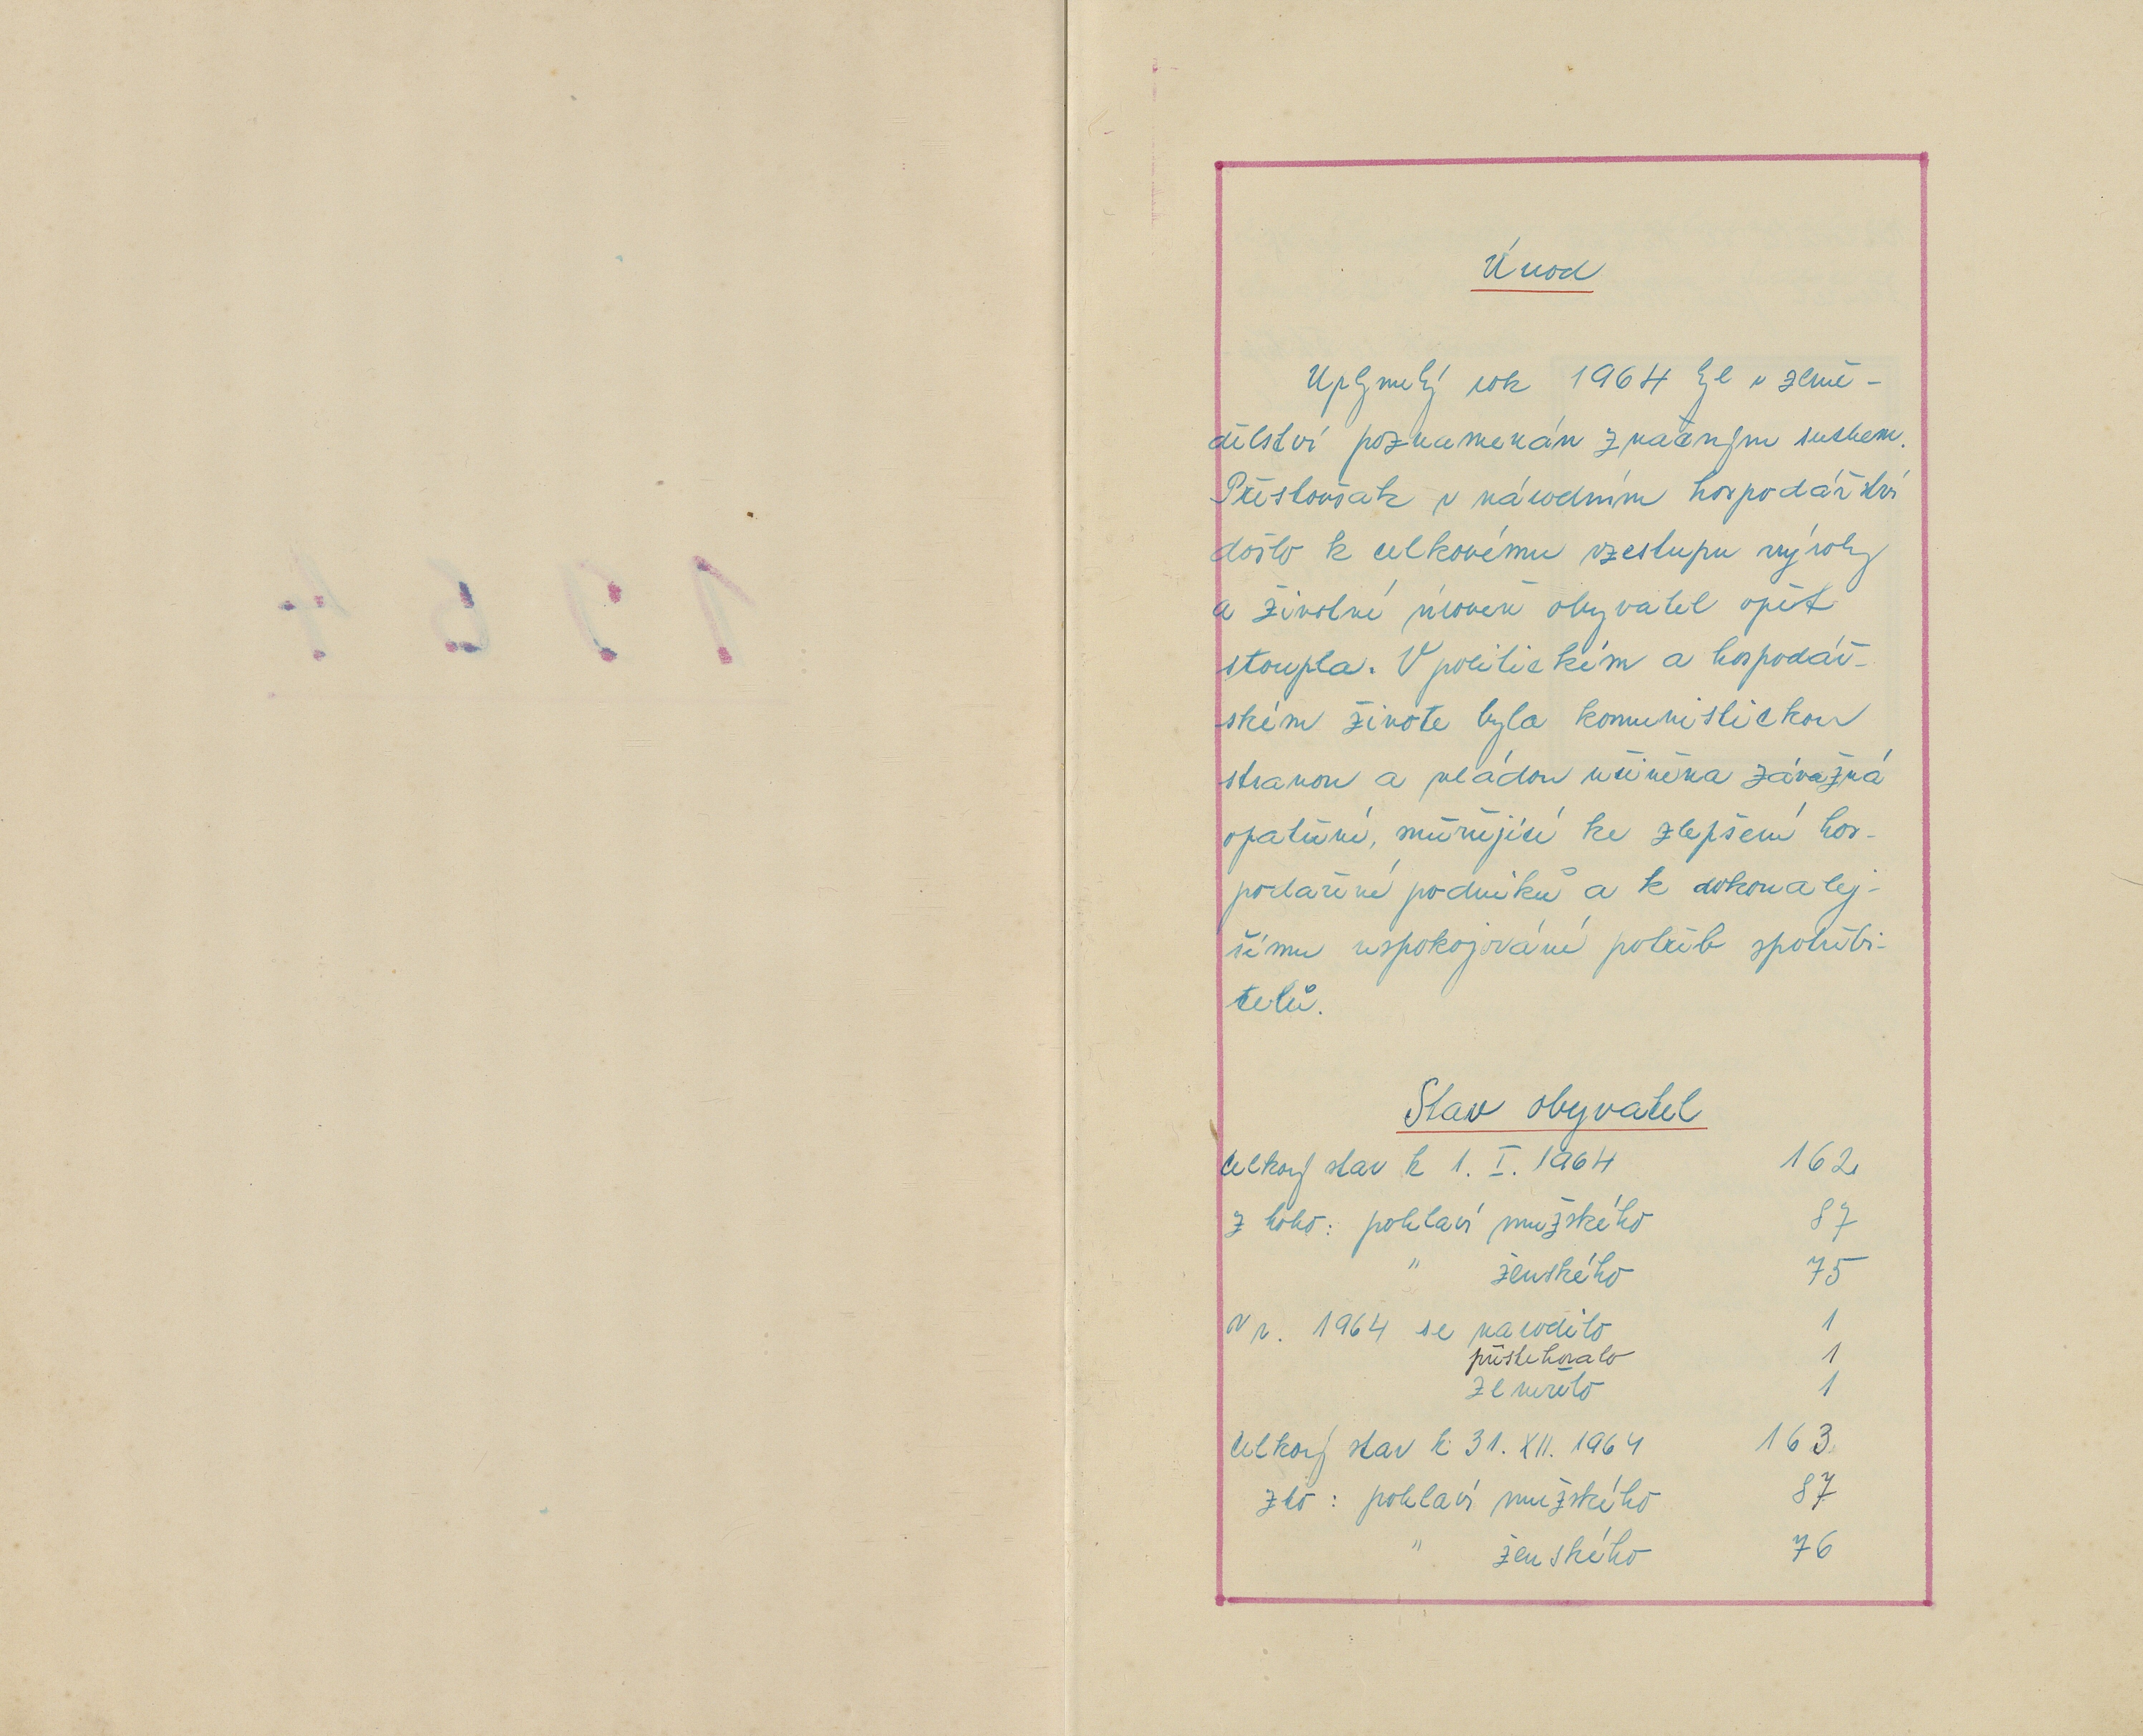 1964
Úvod
Uplynulý rok 1964 byl v země-
dělství poznamenán značným suchem.
Přestovšak v národním hospodářství
došlo k celkovému vzestupu výroby
a životní úroveň obyvatel opět
stoupla. V politickém a hospodář-
ském životě byla komunistickou
stranou a vládou učiněna závažná
opatření, směřující ke zlepšení hos-
podaření podniků a k dokonalej-
šímu uspokojování potřeb spotřebi-
telů.
Stav obyvatel
Celkový stav k 1. I. 1964 162
z toho: pohlaví mužského 87
" ženského 75
V r. 1964 se narodilo 1
přistěhovalo 1
zemřelo 1
Celkový stav k 31. XII. 1964 163
z to: pohlaví mužského 87
" ženského 76